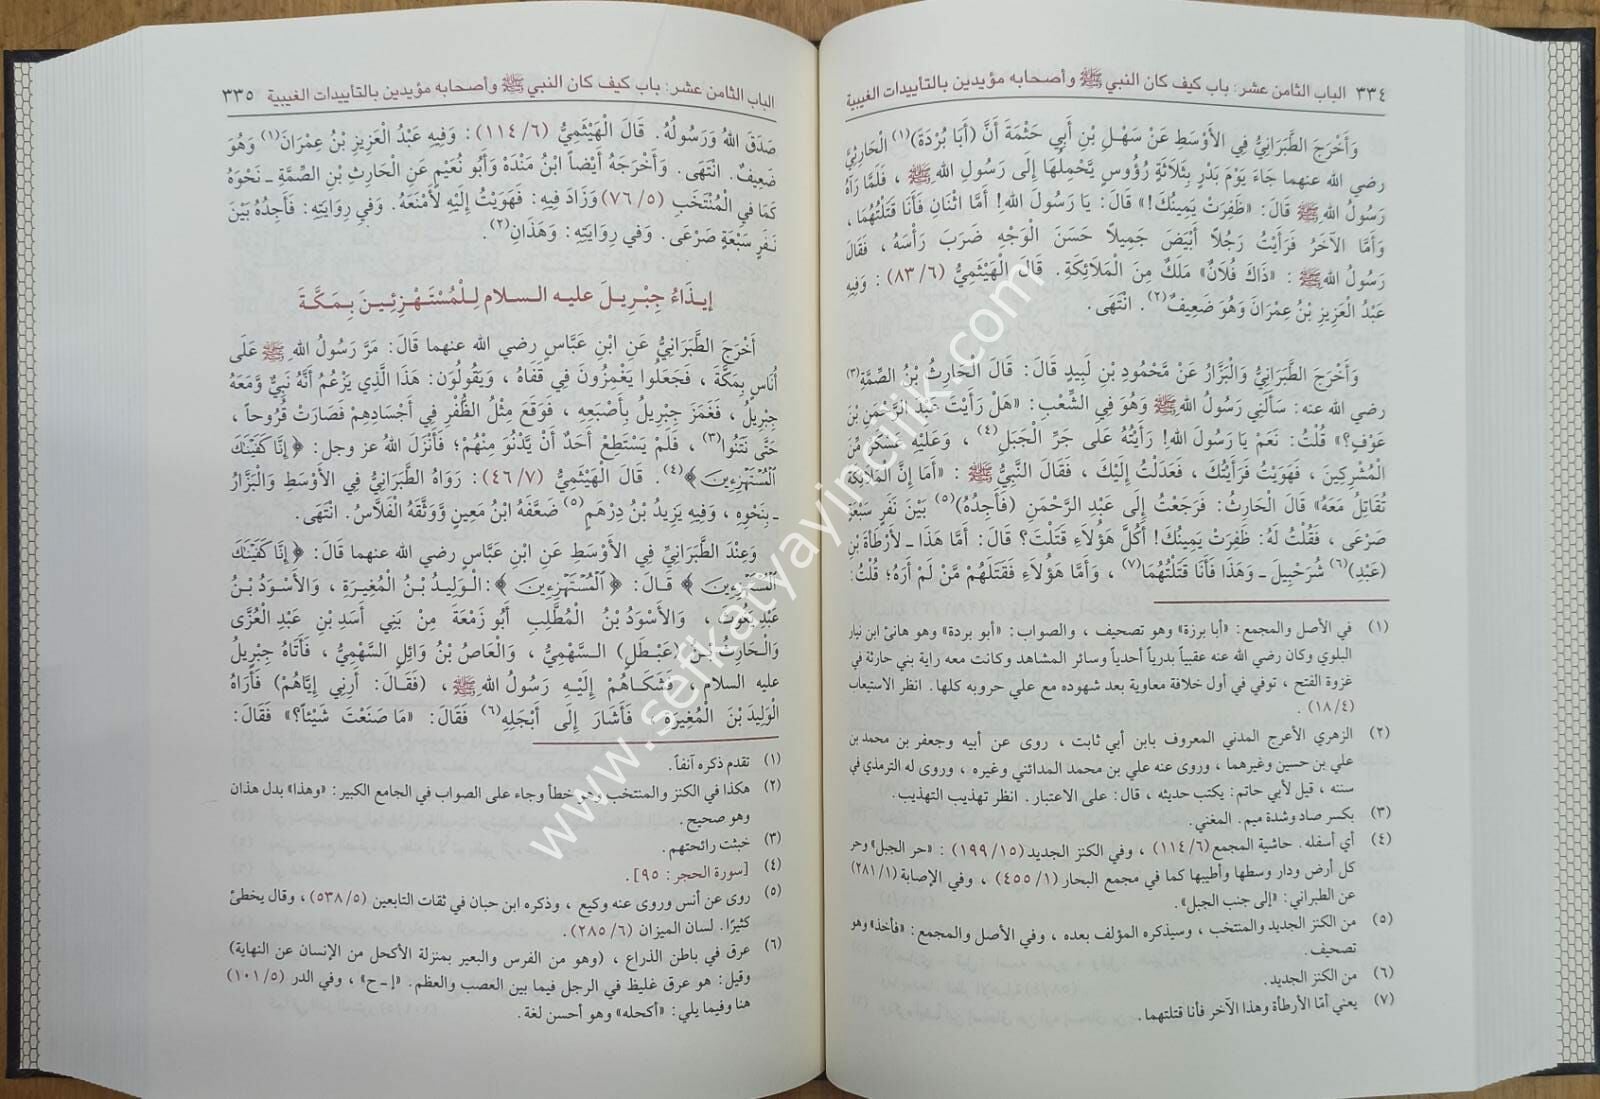 ٣٣٤ الباب الثامن عشر: باب كيف كان النبي ﷺ وأصحابه مؤيدين بالتأييدات الغيبية
وَأَخْرَجَ الطَّبَرَانِيُّ فِي الأَوْسَطِ عَنْ سَهْلِ بْنِ أَبِي حَثْمَةَ أَنَّ (أَبَا بُرْدَةَ)(١) الْحَارِثِيَّ
رضي الله عنهما جَاءَ يَوْمَ بَدْرٍ بِثَلاَثَةِ رُؤُوسٍ يَحْمِلُهَا إِلَى رَسُولِ اللهِ ﷺ ، فَلَمَّا رَآهُ
رَسُولُ اللهِ ﷺ قَالَ: «ظَفِرَتْ يَمِينُكَ!» قَالَ: يَا رَسُولَ اللهِ! أَمَّا اثْنَانِ فَأَنَا قَتَلْتُهُمَا ،
وَأَمَّا الآخَرُ فَرَأَيْتُ رَجُلاً أَبْيَضَ جَمِيلاً حَسَنَ الْوَجْهِ ضَرَبَ رَأْسَهُ ، فَقَالَ
رَسُولُ اللهِ ﷺ : «ذَاكَ فُلاَنٌ» مَلَكٌ مِنَ الْمَلاَئِكَةِ. قَالَ الْهَيْثَمِيُّ (٦/ ٨٣) : وَفِيهِ
عَبْدُ الْعَزِيزِ بْنُ عِمْرَانَ وَهُوَ ضَعِيفٌ(٢) . انْتَهَى.
وَأَخْرَجَ الطَّبَرَانِيُّ وَالْبَزَّارُ عَنْ مَحْمُودِ بْنِ لَبِيدٍ قَالَ: قَالَ الْحَارِثُ بْنُ الصِّمَّةِ(٣)
رضي الله عنه: سَأَلَنِي رَسُولُ اللهِ ﷺ وَهُوَ فِي الشِّعْبِ: «هَلْ رَأَيْتَ عَبْدَ الرَّحْمَنِ بْنَ
عَوْفٍ؟» قُلْتُ: نَعَمْ يَا رَسُولَ اللهِ! رَأَيْتُهُ عَلَى جَرِّ الْجَبَلِ(٤) ، وَعَلَيْهِ عَسْكَرٌ مِّنَ
الْمُشْرِكِينَ ، فَهَوَيْتُ فَرَأَيْتُكَ ، فَعَدَلْتُ إِلَيْكَ ، فَقَالَ النَّبِيُّ ﷺ : «أَمَا إِنَّ الْمَلاَئِكَةَ
تُقَاتِلُ مَعَهُ» قَالَ الْحَارِثُ: فَرَجَعْتُ إِلَى عَبْدِ الرَّحْمَنِ (فَأَجِدُهُ)(٥) بَيْنَ نَفَرٍ سَبْعَةٍ
صَرْعَى ، فَقُلْتُ لَهُ: ظَفِرَتْ يَمِينُكَ! أَكُلَّ هَؤُلاَءِ قَتَلْتَ؟ قَالَ: أَمَّا هَذَا ـ لأَرْطَاةَ بْنِ
(عَبْدِ)(٦) شُرَحْبِيلَ ـ وَهَذَا فَأَنَا قَتَلْتُهُمَا(٧) ، وَأَمَّا هَؤُلاَءِ فَقَتَلَهُمْ مَّنْ لَمْ أَرَهُ؛ قُلْتُ:
(١) في الأصل والمجمع: «أبا برزة» وهو تصحيف ، والصواب: «أبو بردة» وهو هانئ ابن نيار
البلوي وكان رضي الله عنه عقبياً بدرياً أحدياً وسائر المشاهد وكانت معه راية بني حارثة في
غزوة الفتح ، توفي في أول خلافة معاوية بعد شهوده مع علي حروبه كلها. انظر الاستيعاب
(٤/ ١٨) .
(٢) الزهري الأعرج المدني المعروف بابن أبي ثابت ، روى عن أبيه وجعفر بن محمد بن
علي بن حسين وغيرهما ، وروى عنه علي بن محمد المدائني وغيره ، وروى له الترمذي في
سننه ، قيل لأبي حاتم: يكتب حديثه ، قال: على الاعتبار. انظر تهذيب التهذيب.
(٣) بكسر صاد وشدة ميم. المغني.
(٤) أي أسفله. حاشية المجمع (٦/ ١١٤) ، وفي الكنز الجديد (١٥/ ١٩٩) : «حر الجبل» وحر
كل أرض ودار وسطها وأطيبها كما في مجمع البحار (١/ ٤٥٥) ، وفي الإصابة (١/ ٢٨١)
عن الطبراني: «إلى جنب الجبل».
(٥) من الكنز الجديد والمنتخب ، وسيذكره المؤلف بعده ، وفي الأصل والمجمع: «فأخذ» وهو
تصحيف.
(٦) من الكنز الجديد.
(٧) يعني أمّا الأرطأة وهذا الآخر فأنا قتلتهما.
الباب الثامن عشر: باب كيف كان النبي ﷺ وأصحابه مؤيدين بالتأييدات الغيبية ٣٣٥
صَدَقَ اللهُ وَرَسُولُهُ. قَالَ الْهَيْثَمِيُّ (٦/ ١١٤) : وَفِيهِ عَبْدُ الْعَزِيزِ بْنُ عِمْرَانَ(١) وَهُوَ
ضَعِيفٌ. انْتَهَى. وَأَخْرَجَهُ أَيْضاً ابْنُ مَنْدَهْ وَأَبُو نُعَيْمٍ عَنِ الْحَارِثِ بْنِ الصِّمَّةِ ـ نَحْوَهُ
كَمَا فِي الْمُنْتَخَبِ (٥/ ٧٦) وَزَادَ فِيهِ: فَهَوَيْتُ إِلَيْهِ لأَمْنَعَهُ. وَفِي رِوَايَتِهِ: فَأَجِدُهُ بَيْنَ
نَفَرٍ سَبْعَةٍ صَرْعَى. وَفِي رِوَايَتِهِ: وَهَذَانِ(٢).
إِيذَاءُ جِبْرِيلَ عليه السلام لِلْمُسْتَهْزِئِينَ بِمَكَّةَ
أَخْرَجَ الطَّبَرَانِيُّ عَنِ ابْنِ عَبَّاسٍ رضي الله عنهما قَالَ: مَرَّ رَسُولُ اللهِ ﷺ عَلَى
أُنَاسٍ بِمَكَّةَ ، فَجَعَلُوا يَغْمِزُونَ فِي قَفَاهُ ، وَيَقُولُونَ: هَذَا الَّذِي يَزْعُمُ أَنَّهُ نَبِيٌّ وَّمَعَهُ
جِبْرِيلُ ، فَغَمَزَ جِبْرِيلُ بِأَصْبَعِهِ ، فَوَقَعَ مِثْلُ الظُّفْرِ فِي أَجْسَادِهِمْ فَصَارَتْ قُرُوحاً ،
حَتَّى نَتَنُوا(٣) ، فَلَمْ يَسْتَطِعْ أَحَدٌ أَنْ يَّدْنُوَ مِنْهُمْ؛ فَأَنْزَلَ اللهُ عز وجل: ﴿ إِنَّا كَفَيْنَاكَ
الْمُسْتَهْزِءِينَ ﴾(٤) . قَالَ الْهَيْثَمِيُّ (٧/ ٤٦) : رَوَاهُ الطَّبَرَانِيُّ فِي الأَوْسَطِ وَالْبَزَّارُ
ـ بِنَحْوِهِ ، وَفِيهِ يَزِيدُ بْنُ دِرْهَمٍ(٥) ضَعَّفَهُ ابْنُ مَعِينٍ وَوَثَّقَهُ الْفَلاَّسُ. انْتَهَى.
وَعِنْدَ الطَّبَرَانِيِّ فِي الأَوْسَطِ عَنِ ابْنِ عَبَّاسٍ رضي الله عنهما قَالَ: ﴿ إِنَّا كَفَيْنَاكَ
الْمُسْتَهْزِءِينَ ﴾ قَالَ: ﴿ الْمُسْتَهْزِءِينَ ﴾ :الْوَلِيدُ بْنُ الْمُغِيرَةِ ، وَالأَسْوَدُ بْنُ
عَبْدِ يَغُوثَ ، وَالأَسْوَدُ بْنُ الْمُطَّلِبِ أَبُو زَمْعَةَ مِنْ بَنِي أَسَدِ بْنِ عَبْدِ الْعُزَّى
وَالْحَارِثُ بْنُ (عَبْطَلٍ) السَّهْمِيُّ ، وَالْعَاصُ بْنُ وَائِلٍ السَّهْمِيُّ ، فَأَتَاهُ جِبْرِيلُ
عليه السلام ، فَشَكَاهُمْ إِلَيْهِ رَسُولُ اللهِ ﷺ ، (فَقَالَ: أَرِنِي إِيَّاهُمْ) فَأَرَاهُ
الْوَلِيدَ بْنَ الْمُغِيرَةِ ، فَأَشَارَ إِلَى أَبْجَلِهِ(٦) فَقَالَ: «مَا صَنَعْتَ شَيْئاً؟» فَقَالَ:
(١) تقدم ذكره آنفاً.
(٢) هكذا في الكنز والمنتخب وهو خطأ وجاء على الصواب في الجامع الكبير: «وهذا» بدل هذان
وهو صحيح.
(٣) خبثت رائحتهم.
(٤) [سورة الحجر: ٩٥] .
(٥) روى عن أنس وروى عنه وكيع ، وذكره ابن حبان في ثقات التابعين (٥/ ٥٣٨) ، وقال يخطئ
كثيرًا. لسان الميزان (٦/ ٢٨٥) .
(٦) عرق في باطن الذراع ، (وهو من الفرس والبعير بمنزلة الأكحل من الإنسان عن النهاية)
وقيل: هو عرق غليظ في الرجل فيما بين العصب والعظم. «إ-ح» ، وفي الدر (٥/ ١٠١)
هنا وفيما يلي: «أكحله» وهو أحسن لغة.
www.sefkatyayincilik.com